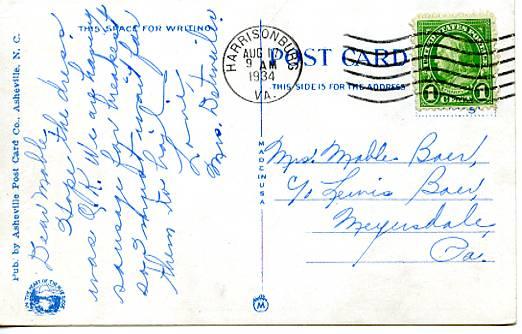 THIS SPACE FOR WRITING
POST CARD
THIS SIDE IS FOR THE ADDRESS
HARRISONBURG
AUG 17
9 AM
1934
VA.
UNITED STATES POSTAGE
1 CENT 1
Pub. by Asheville Post Card Co., Asheville, N. C.
MADE IN USA
Dear Mable
Hope the dress
was O.K. We are having
sausage for breakfast
so I must wait for
them to
Love
Mrs. Detwiler
Mrs. Mable Boer,
c/o Lewis Boer,
Meyersdale,
Pa.
M